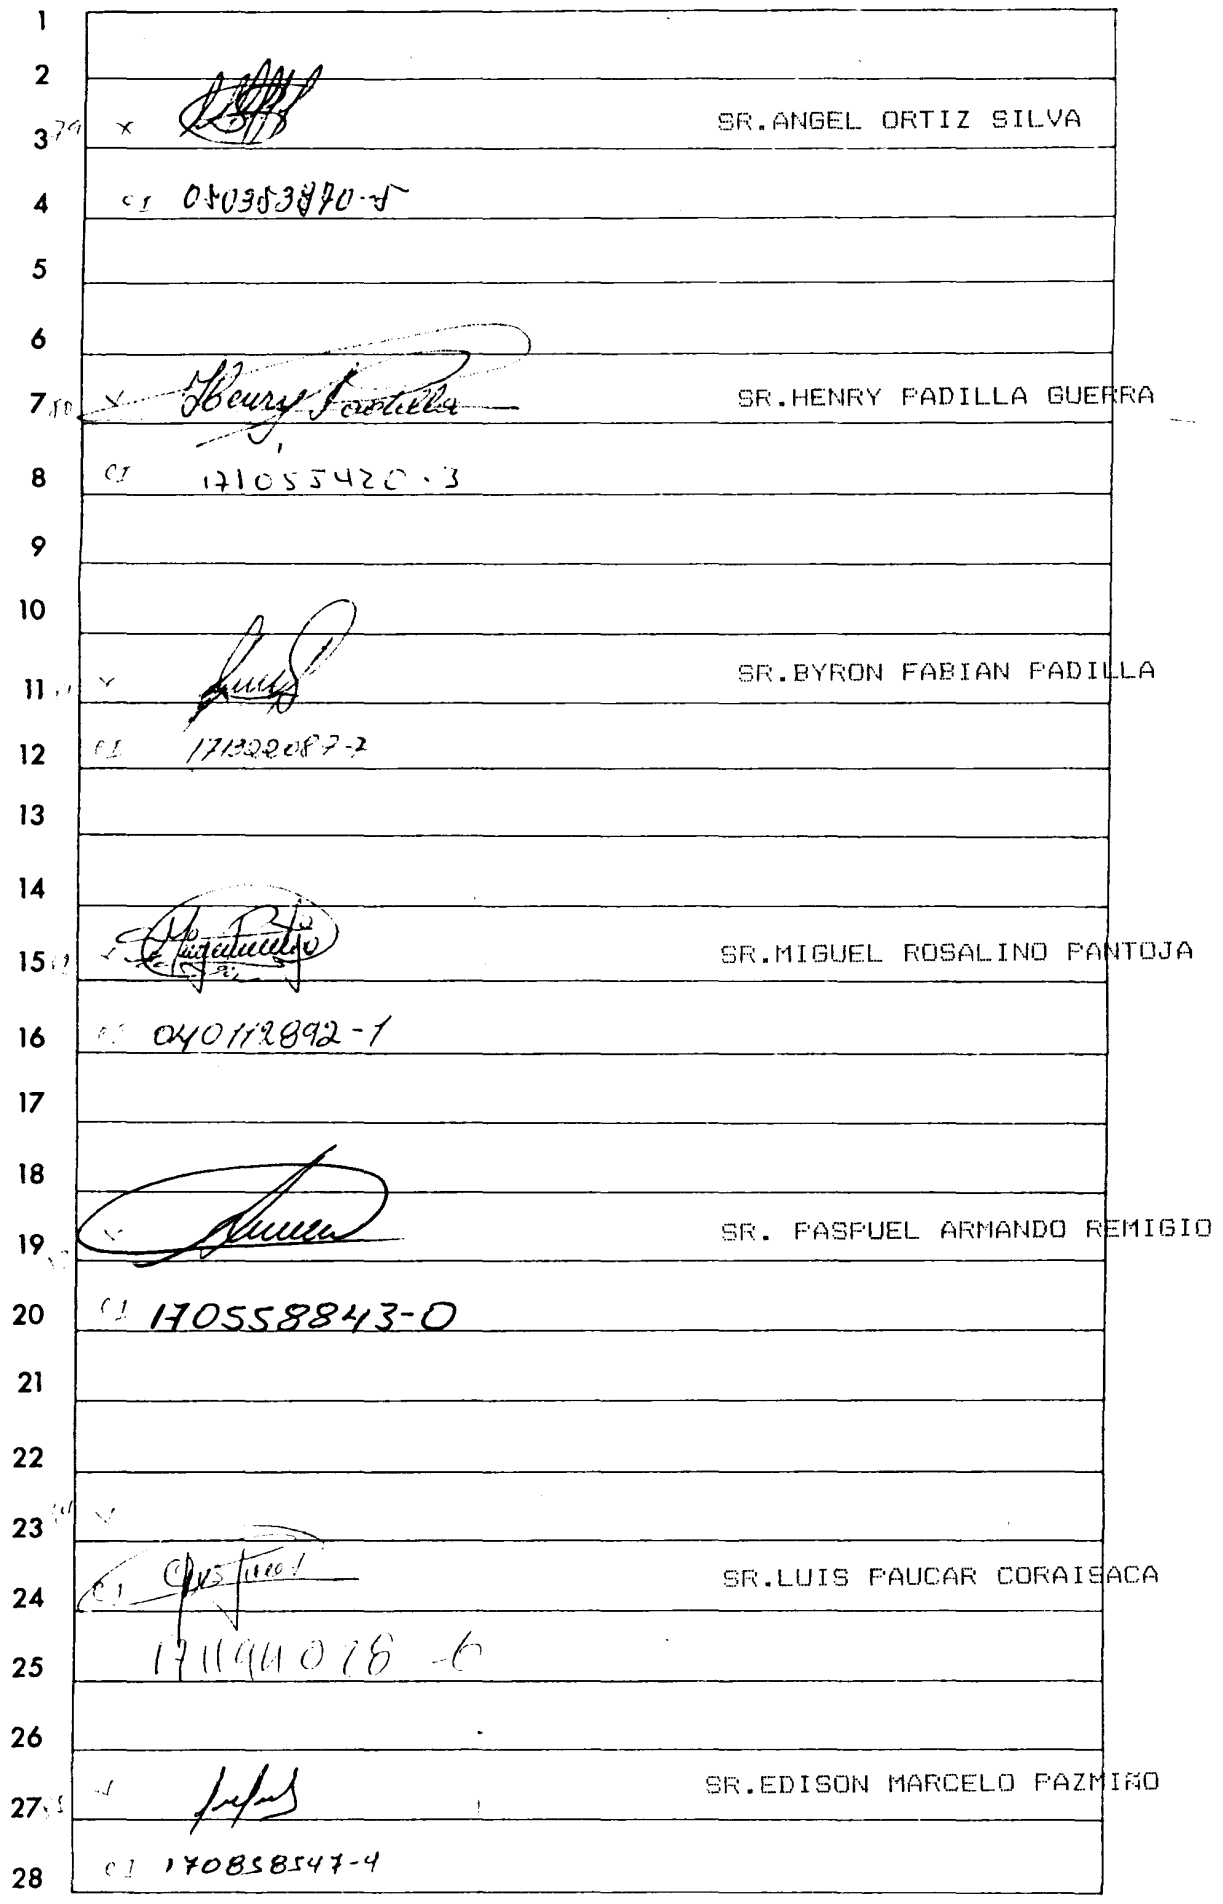 1
2
3 79 x SR.ANGEL ORTIZ SILVA
4 CI
5
6
7 80 Henry Padilla SR.HENRY PADILLA GUERRA
8 CI 171055420-3
9
10
11 SR.BYRON FABIAN PADILLA
12 CI 171322087-7
13
14
15 SR.MIGUEL ROSALINO PANTOJA
16 CI 040112892-1
17
18
19 SR. PASPUEL ARMANDO REMIGIO
20 CI 170558843-0
21
22
23
24 CI SR.LUIS PAUCAR CORAISACA
25
26
27 SR.EDISON MARCELO PAZMIÑO
28 CI 170858547-4